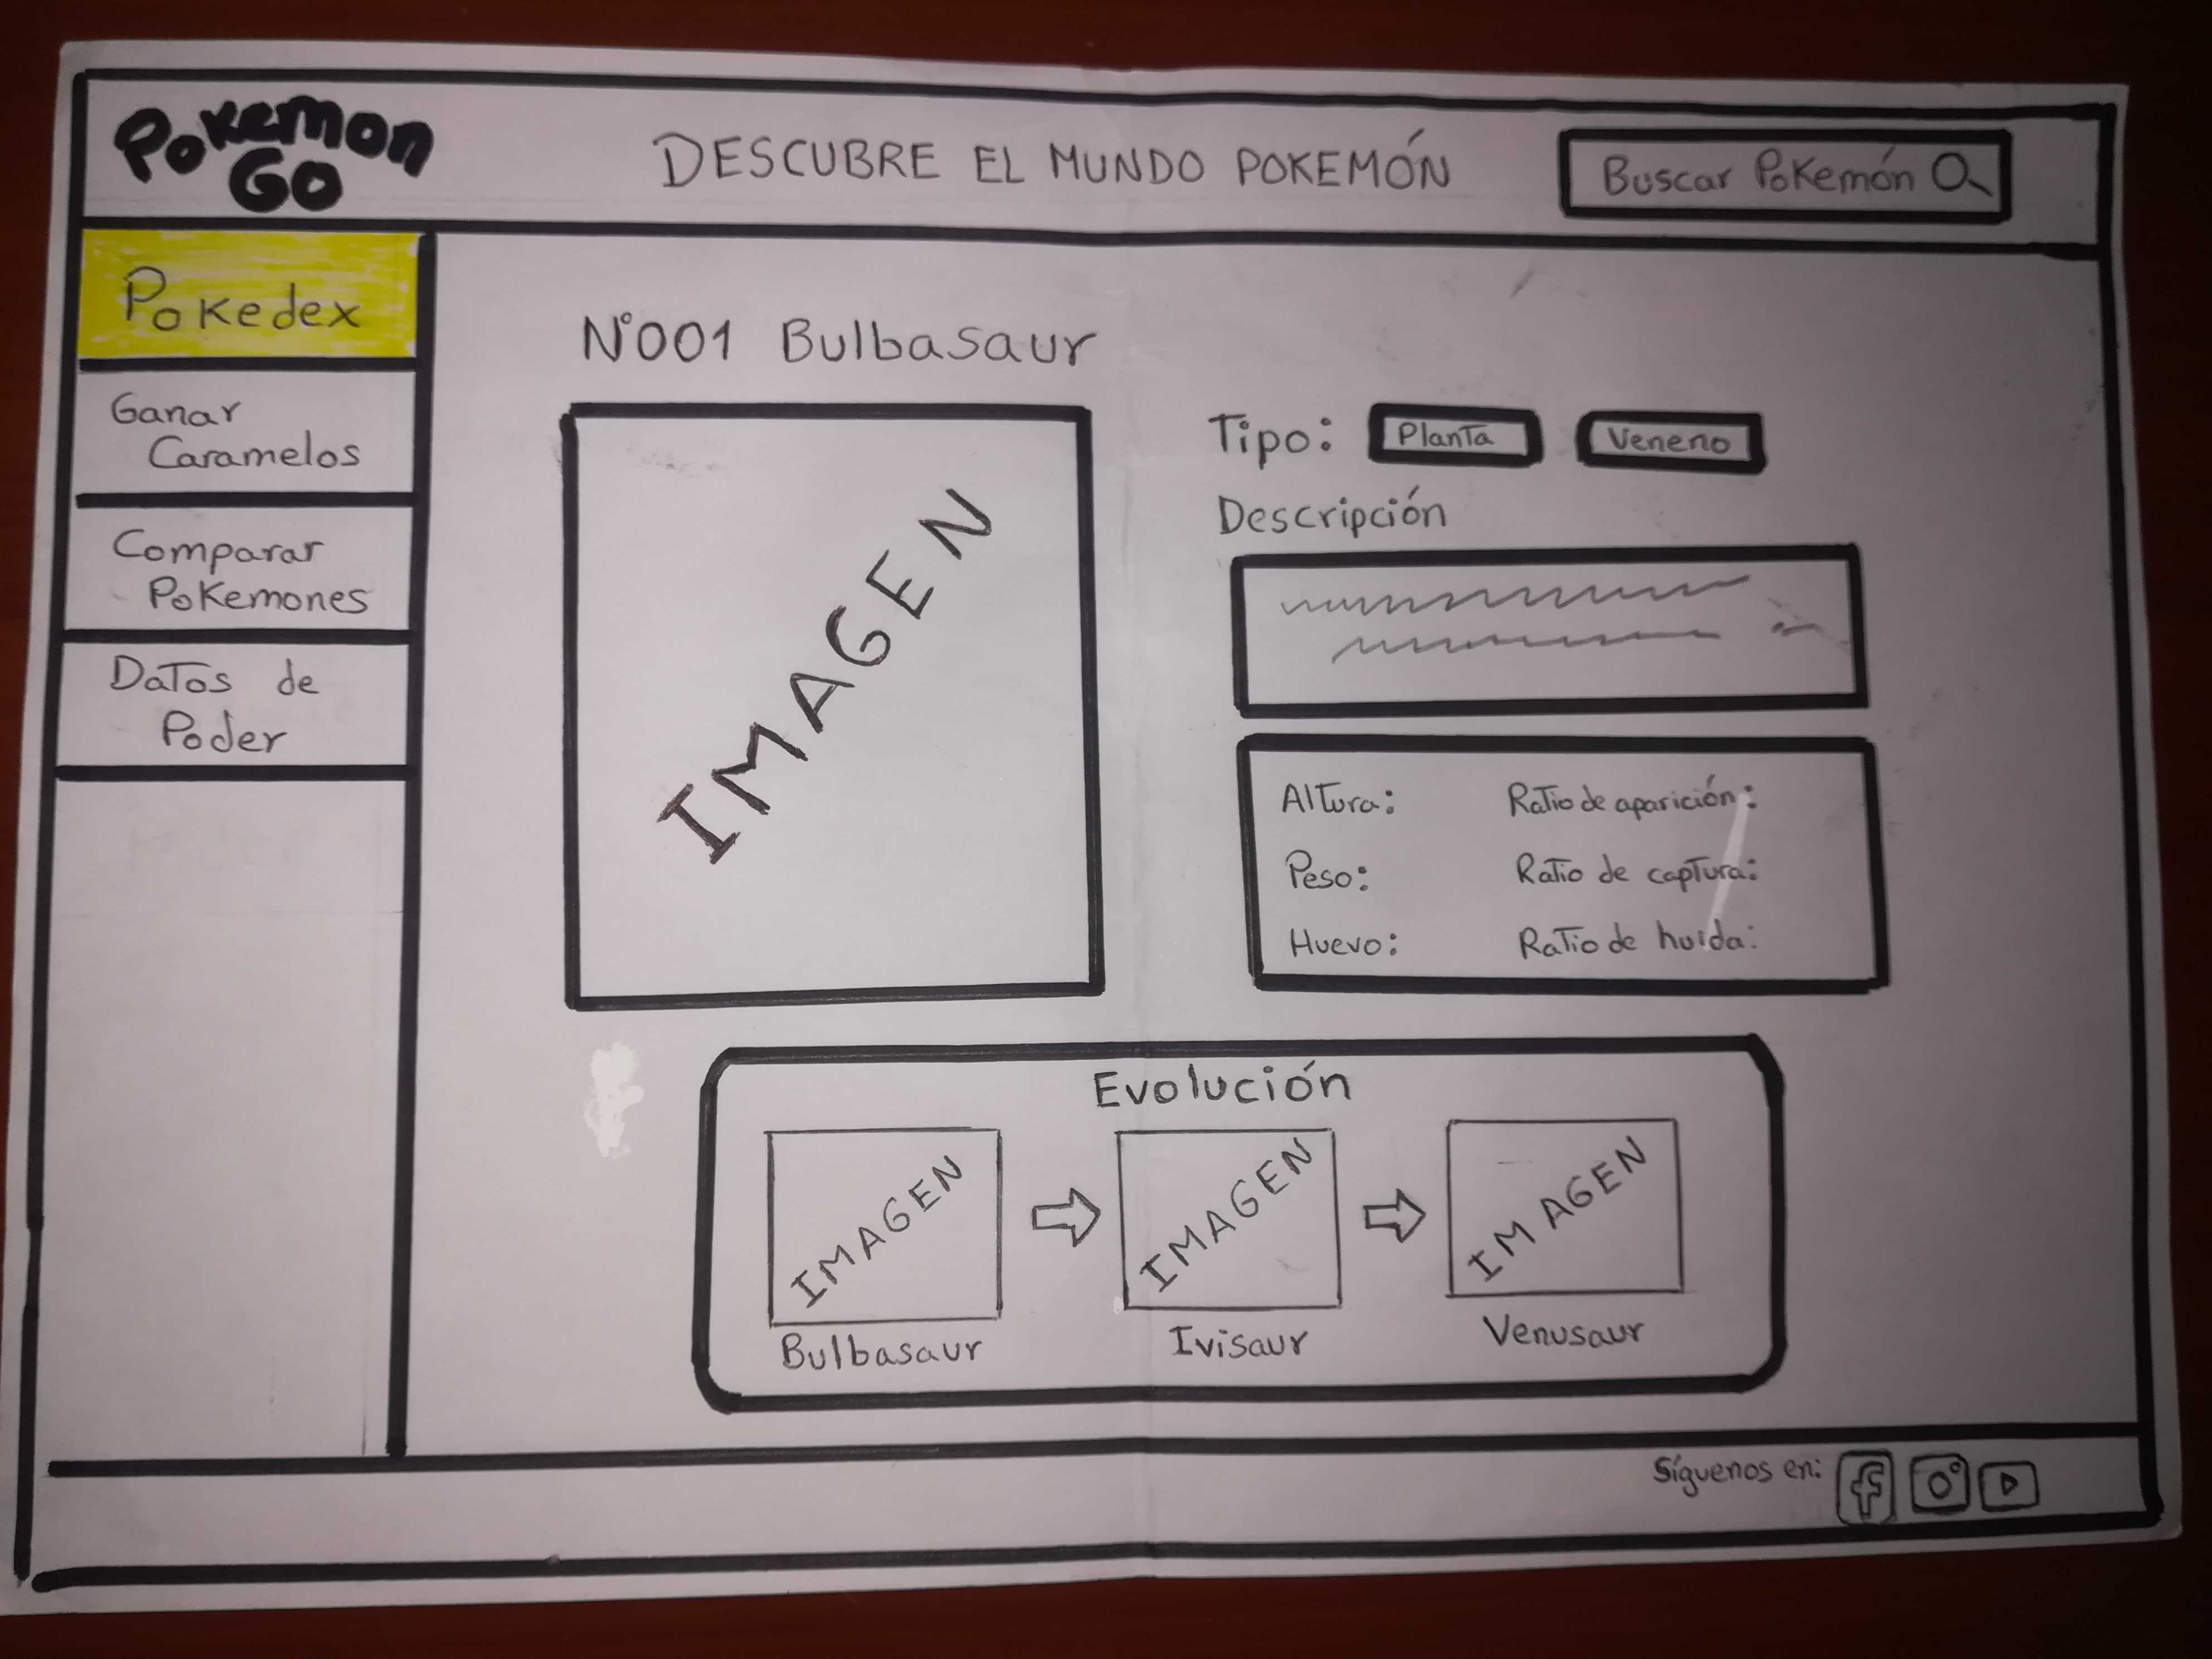 Pokemon
GO
DESCUBRE EL MUNDO POKEMÓN
Buscar Pokemón
Pokedex
Ganar
Caramelos
Comparar
Pokemones
Datos de
Poder
N°001 Bulbasaur
IMAGEN
Tipo: Planta Veneno
Descripción
Altura: Ratio de aparición:
Peso: Ratio de captura:
Huevo: Ratio de huida:
Evolución
IMAGEN IMAGEN IMAGEN
Bulbasaur Ivisaur Venusaur
Síguenos en: